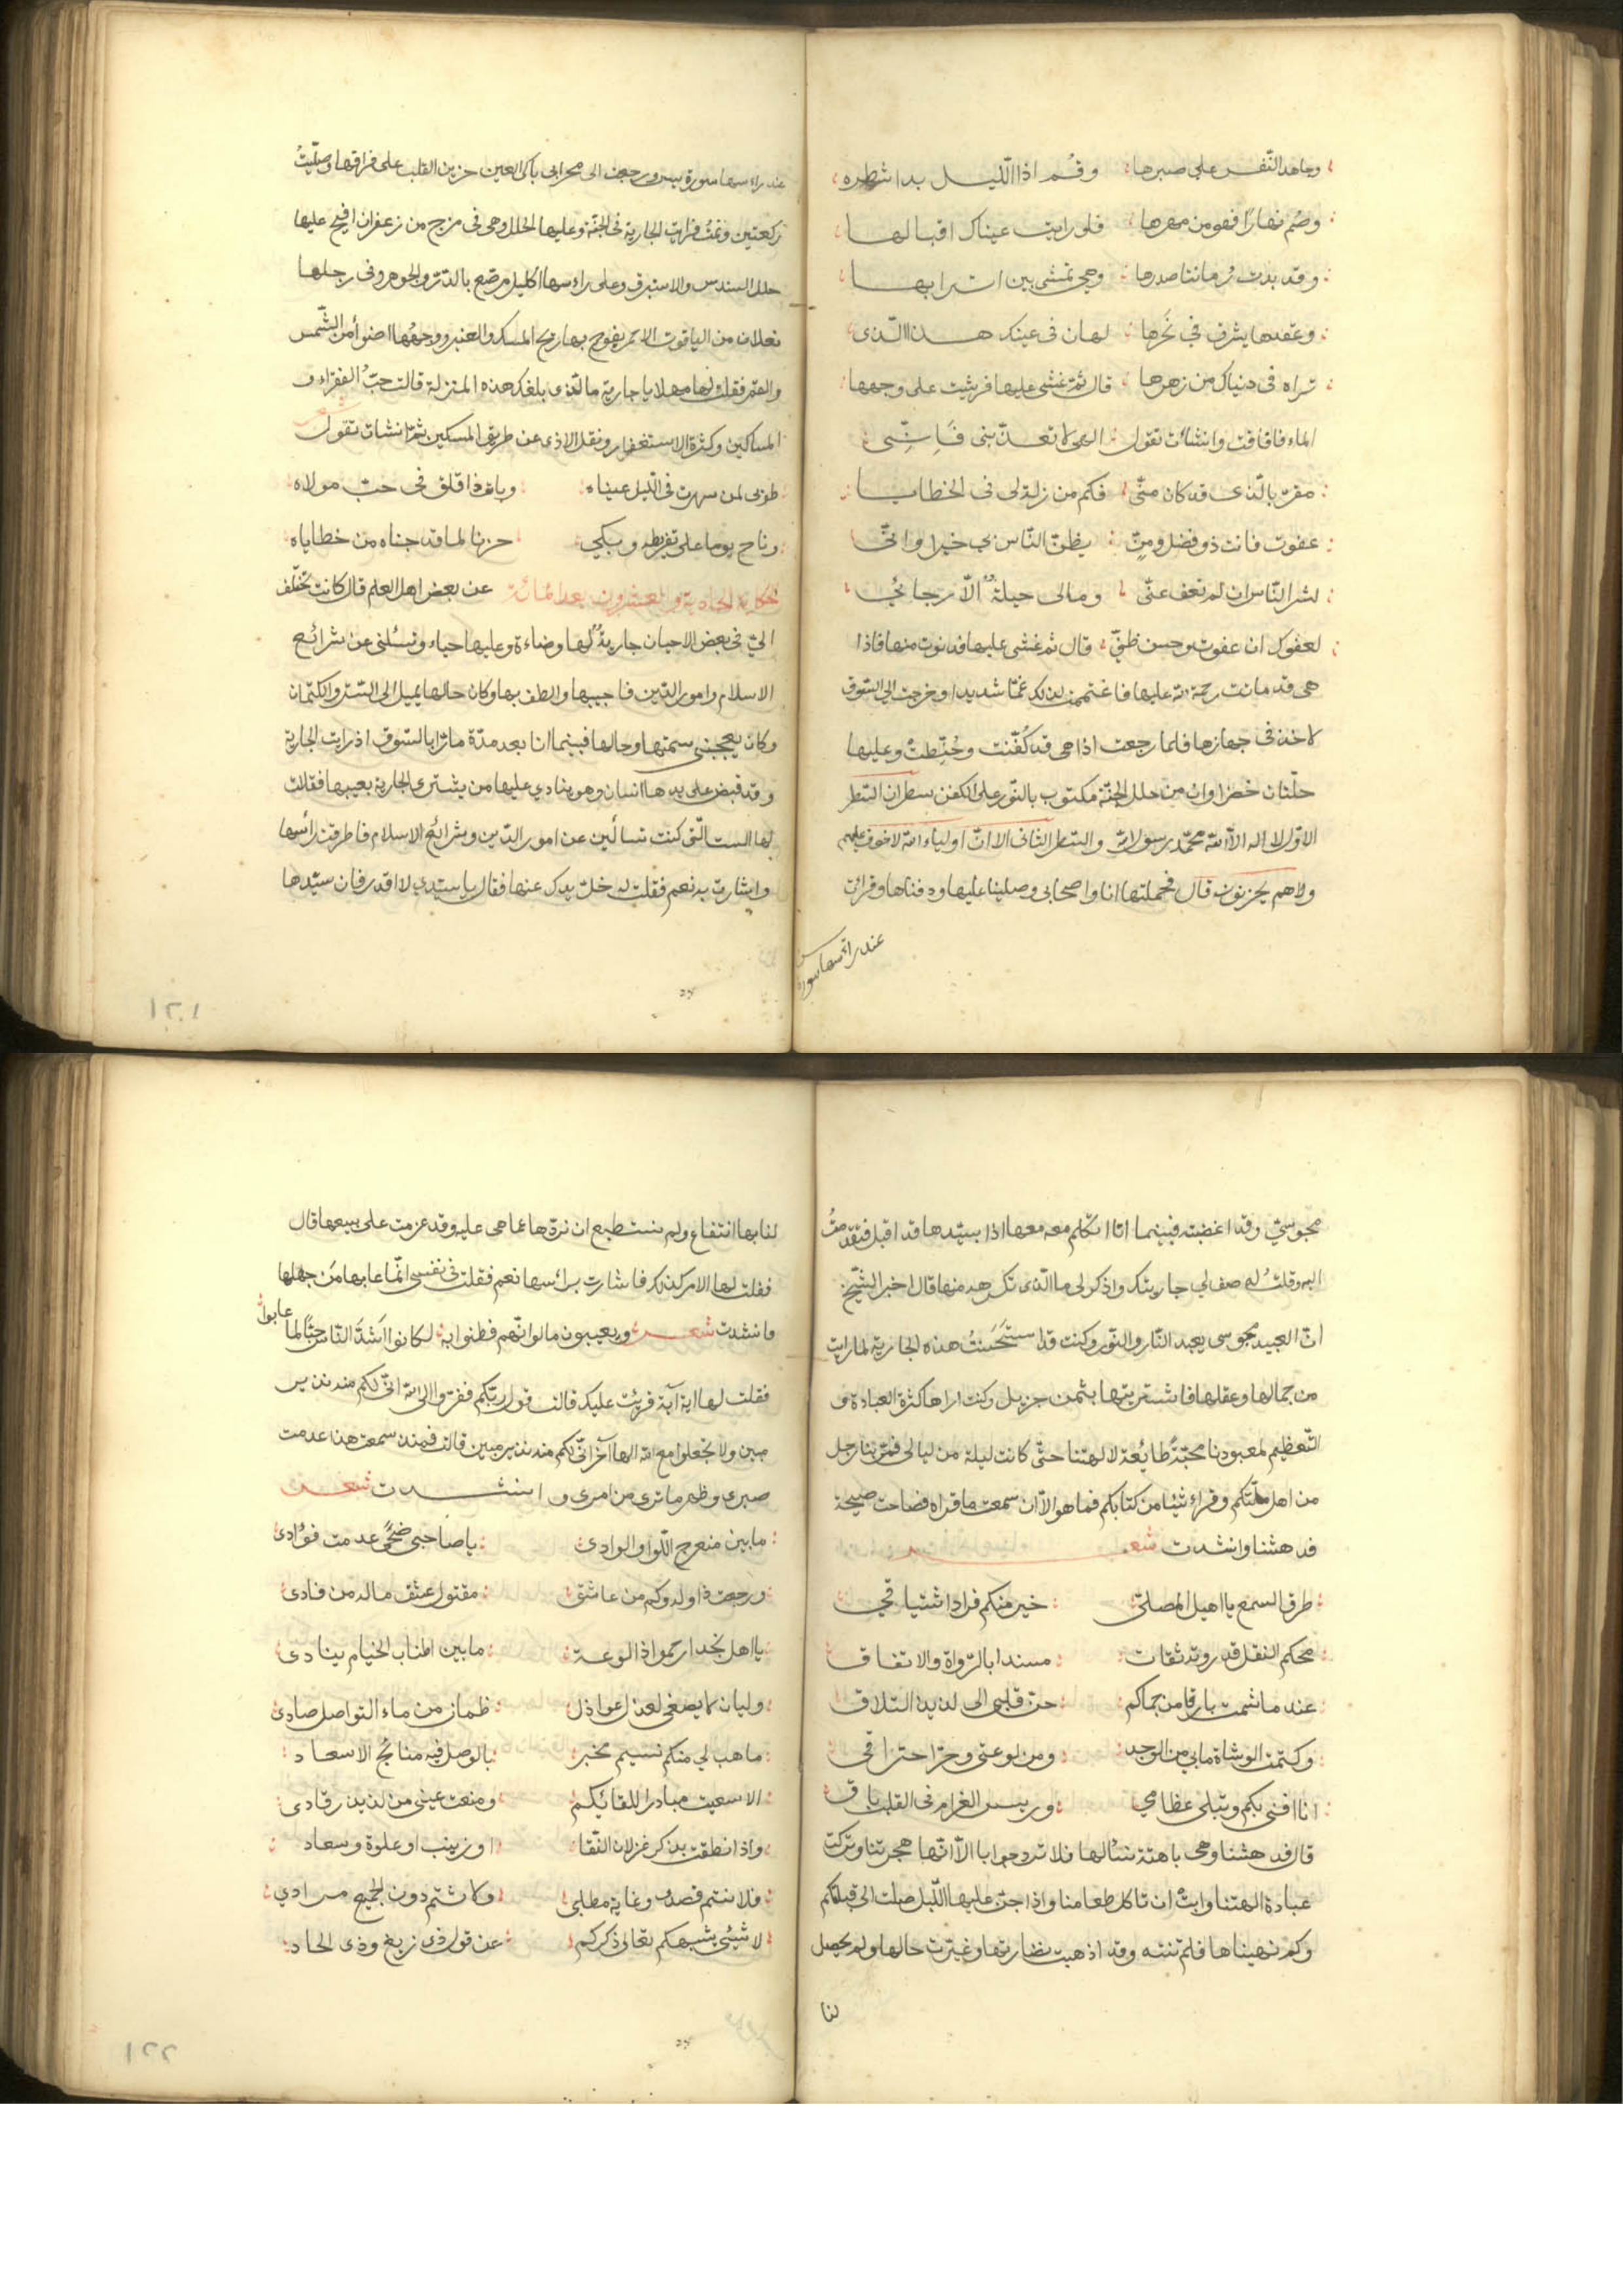 وجاهد النّفس على صبرها وقُم اذا اللّيل بدا شطره
وصُم نهارًا فهو من مهرها فلو رايت عيناك اقبالها
وقد بدت رُمانتا صدرها وهي تمشي بين اترابها
وعقدها يشرق في نَحرها لهان في عينك هذا الّذى
تراه في دنياك من زهرها قال ثمّ غشى عليها فرشّيت على وجهها
الماء فافاقت وانشأت تقول الهى لا تعذّبنى فَاِنِّى
مقرّ بالّذى قد كان منّى فكم من زلة لى فى الخطايا
عفوت فانت ذو فضل ومنٍّ يظنّ النّاس بي خيرا وانّى
لشر النّاس ان لم تعف عنّى ومالى حيلةٌ الاّ رجائي
لعفوك ان عفوت وحسن ظنّي قال ثم غشى عليها فدنوت منها فاذا
هي قد ماتت رحمة الله عليها فاغتممت لذلك غمّا شديدا وخرجت الى السّوق
لاخذ فى جهازها فلما رجعت اذا هى قد كُفّنت وحُنّطتْ وعليها
حلّتان خضراوان من حلل الجنّة مكتوب بالنّور على الكفن سطران السّطر
الاوّل لا اله الاّ الله محمّد رسول الله والسّطر الثانى الا انّ اولياء الله لا خوف عليهم
ولا هم يحزنون قال فحملتها انا واصحابى وصلينا عليها ودفناها وقرات
عند راسها سورة
عند راسها سورة يس ورجعت الى محرابى باكى العين حزين القلب على فراقها وصلّيتُ
ركعتين ونمتُ فرايت الجارية فى الجنّة وعليها الحلل وهى فى مرج من زعفران افيح عليها
حلل السندس والاستبرق وعلى راوسها اكليل مرصّع بالدّرّ والجوهر وفى رجلها
نعلان من الياقوت الاحمر يفوح بها ريح المسك والعنبر ووجهُها اضوأ من الشّمس
والقمر فقلت لها مهلا يا جارية ما الّذى بلغك هذه المنزلة قالت حبّ الفقراء و
المساكين وكثرة الاستغفار ونقل الاذى عن طريق المسكين ثمّ انشات تقول
طوبى لمن سهرت فى اللّيل عيناه وبات ذا قلق فى حبّ مولاه
وناح يوما على تفريطه وبكي حزنا لما قد جناه من خطاياه
حكاية الحادية والعشرون بعد المائة عن بعض اهل العلم قال كانت تختلف
الىّ فى بعض الاحيان جاريةٌ لها وضاءة وعليها حياء وتسئلنى عن شرائع
الاسلام وامور الدّين فاجيبها والطف بها وكان حالها يميل الى السّتر والكتمان
وكان يعجبنى سمتها وحالها فبينما انا بعد مدّة مارّا بالسّوق اذ رايت الجارية
وقد قبض على يدها انسان وهو ينادي عليها من يشترى الجارية بعيبها فقلت
لها الست الّتى كنت تسألين عن امور الدّين وشرائع الاسلام فاطرقت رأسها
واشارت به نعم فقلت له خلّ يدك عنها فقال يا سيّدي لا اقدر فان سيّدها
١٢١
مجوسيّ وقد اغضبته فبينما انا اتكلم معه معها اذا بسيّدها قد اقبل فتقدمتُ
اليه وقلتُ له صف لي جاريتك واذكر لى ما الّذى تكرهه منها قال اخبر الشّيخ
انّ العبيد مجوسى يعبد النّار والنّور وكنت قد استَحسَنتُ هذه الجارية لما رايت
من جمالها وعقلها فاشتريتها بثمن جزيل وكنت اراها كثرة العبادة و
التّعظيم لمعبودنا محبّةً طائعة لالهتنا حتّى كانت ليلة من ليالى فمرّ بنا رجل
من اهل ملّتكم وقراء شيئا من كتابكم فما هو الاّ ان سمعت ما قراه فصاحت صيحة
فدهشنا وانشدت شعر
طرق السمع يا اهيل المصلّى خير منكم فزاد اشتياقي
محكم النقل قد روته ثقات مسندا بالرّواة والاتفاق
عند ما شمت بارقا من حماكم حنّ قلبى الى لذيذ التلاق
وكتمت الوشاة مابي من الوجد ومن لوعتى وحرّ احتراقى
انا افنى بكم وتبلى عظامي ورسيس الغرام فى القلب باق
قال فدهشنا وهى باهتة نسألها فلا تردّ جوابا الاّ انّها هجرتنا وتركت
عبادة الهتنا وابتْ ان تاكل طعامنا واذا جنّ عليها اللّيل صلت الى قبلتكم
وكم نهيناها فلم تنته وقد اذهبت نضارتها وغيّرت حالها ولم يحصل
لنا
لنا بها انتفاع ولم نستطيع ان نردّها عما هى عليه وقد عزمت على بيعها قال
فقلت لها الامر كذلك فاشارت براسها نعم فقلت فى نفسى انّما عابها من جهلها
وانشدت شعر ويعيبون مالو انّهم فطنوا به لكانوا اَشدَّ النّاس حبًّا لما عابوا
فقلت لها اية آية قرئت عليك قالت قول ربّكم ففرّوا الى الله انّى لكم منه نذير
مبين ولا تجعلوا مع الله الها آخر انّى لكم منه نذير مبين قالت فمنذ سمعت هذا عدمت
صبرى وظهر ما ترى من امرى و انشدت شعر
ما بين منعرج اللّوا والوادى يا صاحبى ضحًى عدمت فؤادى
ورجعت ذا وله وكم من عاشق مقتول عشق ماله من فادى
يا اهل نجد ارحموا ذا لوعة ما بين اطناب الخيام ينادى
ولهان لا يصغى لعذل عواذل ظمان من ماء التواصل صادى
ما هب لي منكم نسيم مخبر بالوصل فيه منائح الاسعاد
الا سعيت مبادرا للقائكم ومنعت عينى من لذيذ رقادى
واذا نطقت بذكر غزلان النّقا او زينب او علوة وسعاد
فلانتم قصدى وغاية مطلبى ولانتم دون الجميع مرادي
لا شيئى يشبهكم تعالى ذكركم عن قول ذى زيغ وذى الحاد
١٢٢